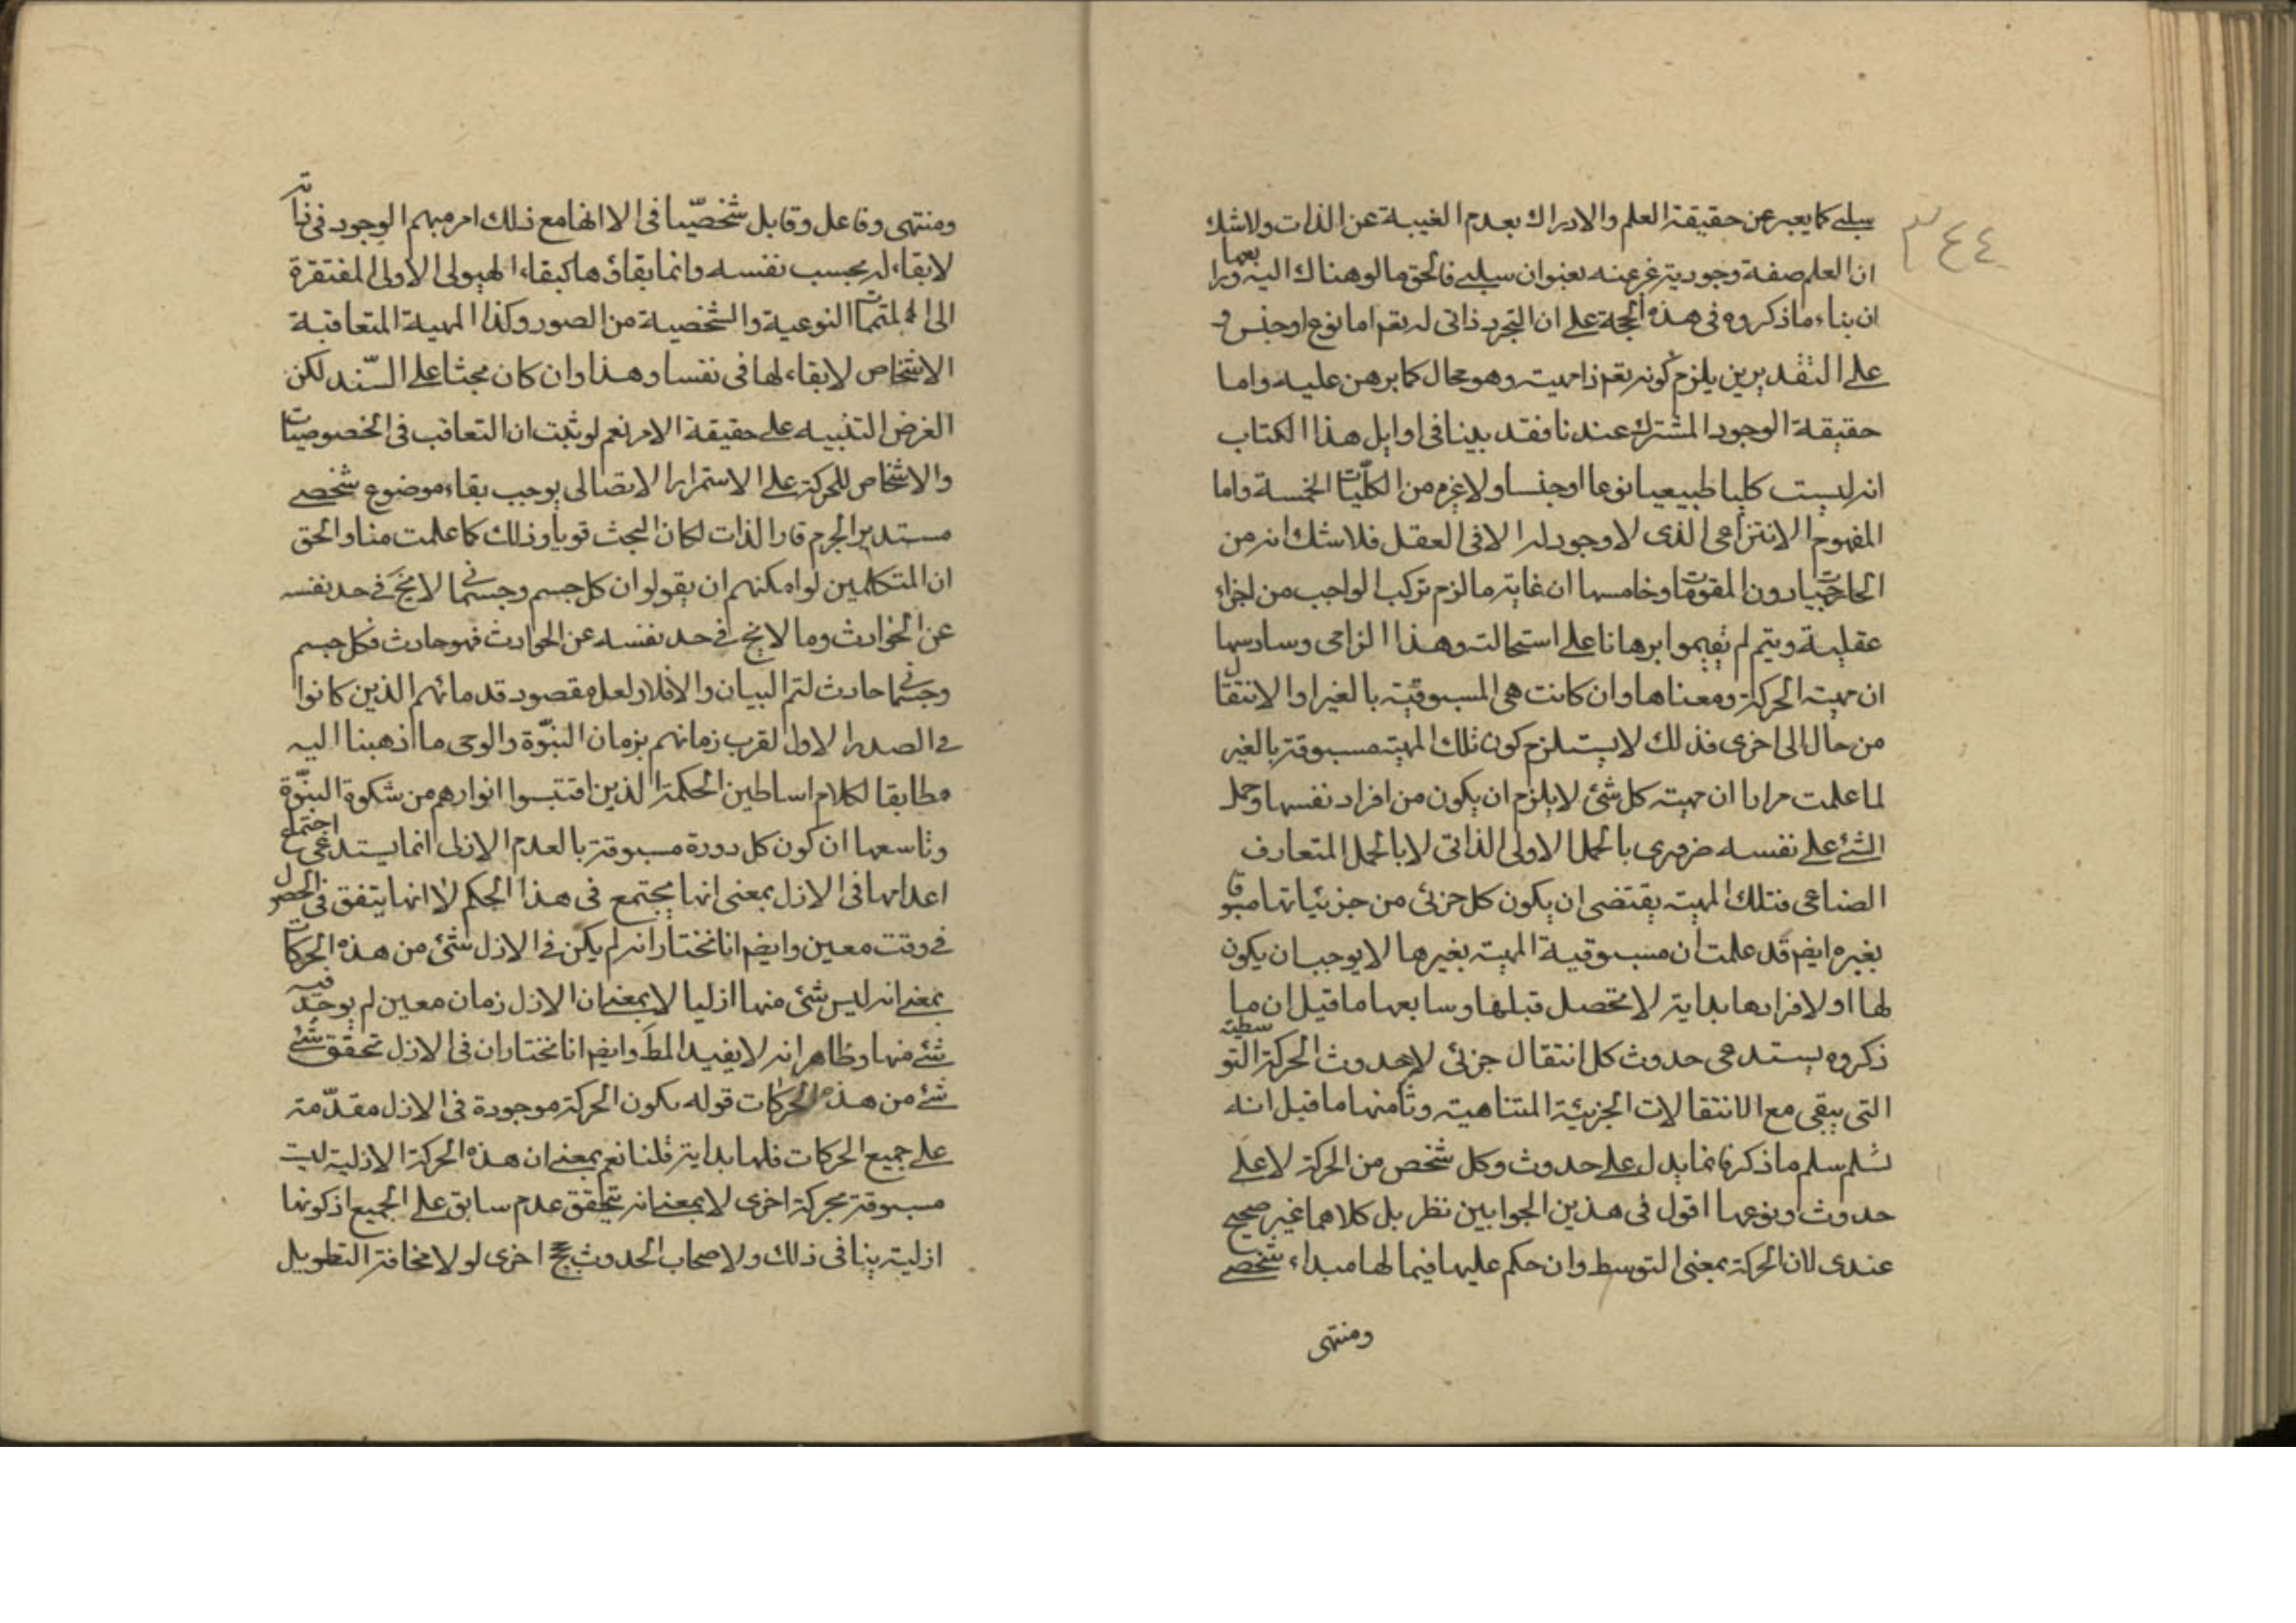 ٣٤٤
سلبي كما يعبر عن حقيقة العلم والادراك بعدم الغيبة عن الذات ولا شك
ان العلم صفة وجودية عبر عنه بعنوان سلبي فالحق مالوهناك اليه ورابعها
ان بناء ما ذكروه في هذه الحجة على ان التجرد ذاتي له تعم اما نوع او جنس و
على التقديرين يلزم كونه تعم ذا مهية وهو محال كما برهن عليه واما
حقيقة الوجود المشترك عندنا فقد بينا في اوايل هذا الكتاب
انه ليست كليا طبيعيا نوعا او جنسا ولا غيره من الكليات الخمسة واما
المفهوم الانتزاعي الذى لا وجود له الا في العقل فلا شك انه من
الخارجيات دون المقومات وخامسها ان غاية ما لزم تركب الواجب من اجزاء
عقلية ويتم لم يقيموا برهانا على استحالته وهذا الزامى وسادسها
ان مهية الحركة ومعناها وان كانت هى المسبوقية بالغير او الانتقال
من حال الى اخرى فذلك لا يستلزم كون تلك المهية مسبوقة بالغير
لما علمت مرارا ان مهية كل شئ لا يلزم ان يكون من افراد نفسها وحمل
الشئ على نفسه ضرورى بالحمل الاولى الذاتى لا بالحمل المتعارف
الصناعى فتلك المهية يقتضى ان يكون كل جزئى من جزئياتها مسبوقا
بغيره ايضم قد علمت ان مسبوقية المهية بغيرها لا يوجب ان يكون
لها او لافرادها بداية لا تحصل قبلها وسابعها ما قيل ان ما
ذكروه يستدعى حدوث كل انتقال جزئى لا حدوث الحركة التوسطية
التى يبقى مع الانتقالات الجزيئة المتناهية وثامنها ما قيل انه
سلم ما ذكر فانما يدل على حدوث وكل شخص من الحركة لا على
حدوث نوعها اقول في هذين الجوابين نظر بل كلاهما غير صحيح
عندى لان الحركة بمعنى التوسط وان حكم عليها فيما لها مبداء شخصى
ومنتهى
ومنتهى وفاعل وقابل شخصيا في الا انها مع ذلك امر مبهم الوجود في ذاته
لا بقاء له بحسب نفسه وانما بقاؤها كبقاء الهيولى الاولى المفتقرة
الى المتممات النوعية والشخصية من الصور وكذا المهية المتعاقبة
الاشخاص لا بقاء لها في نفسا وهذا وان كان بحثا على السند لكن
الغرض التنبيه على حقيقة الامر نعم لو ثبت ان التعاقب في الخصوصيات
والاشخاص للحركة على الاستمرار الاتصالى يوجب بقاء موضوع شخصى
مستدير الجرم قار الذات لكان البحث قويا وذلك كما علمت منا والحق
ان المتكلمين لو امكنهم ان يقولوا ان كل جسم وجسمانى لا يخ في حد نفسه
عن الحوادث وما لا يخ في حد نفسه عن الحوادث فهو حادث فكل جسم
وجسمانى حادث لتم البيان والا فلا ولعل مقصود قدمائهم الذين كانوا
في الصدر الاول لقرب زمانهم بزمان النبوة والوحى ما اذهبنا اليه
مطابقا لكلام اساطين الحكمة الذين اقتبسوا انوارهم من شكوة النبوة
وتاسعها ان كون كل دورة مسبوقة بالعدم الازلى انما يستدعى اجتماع
اعدامها في الازل بمعنى انها يجتمع في هذا الحكم لا انها يتفق في الحصول
في وقت معين وايضم انا نختار انه لم يكن في الازل شئ من هذه الحركات
بمعنى انه ليس شئ منها ازليا لا بمعنى ان الازل زمان معين لم يوجد فيه
شئ منها وظاهر انه لا يفيد المط وايضم انا نختار ان في الازل تحقق شئ
شئ من هذه الحركات قوله يكون الحركة موجودة في الازل مقدمة
على جميع الحركات فلها بداية قلنا نعم بمعنى ان هذه الحركة الازلية ليست
مسبوقة بحركة اخرى لا بمعنى انه يتحقق عدم سابق على الجميع اذ كونها
ازلية ينافى ذلك ولاصحاب الحدوث حجج اخرى لولا مخافة التطويل